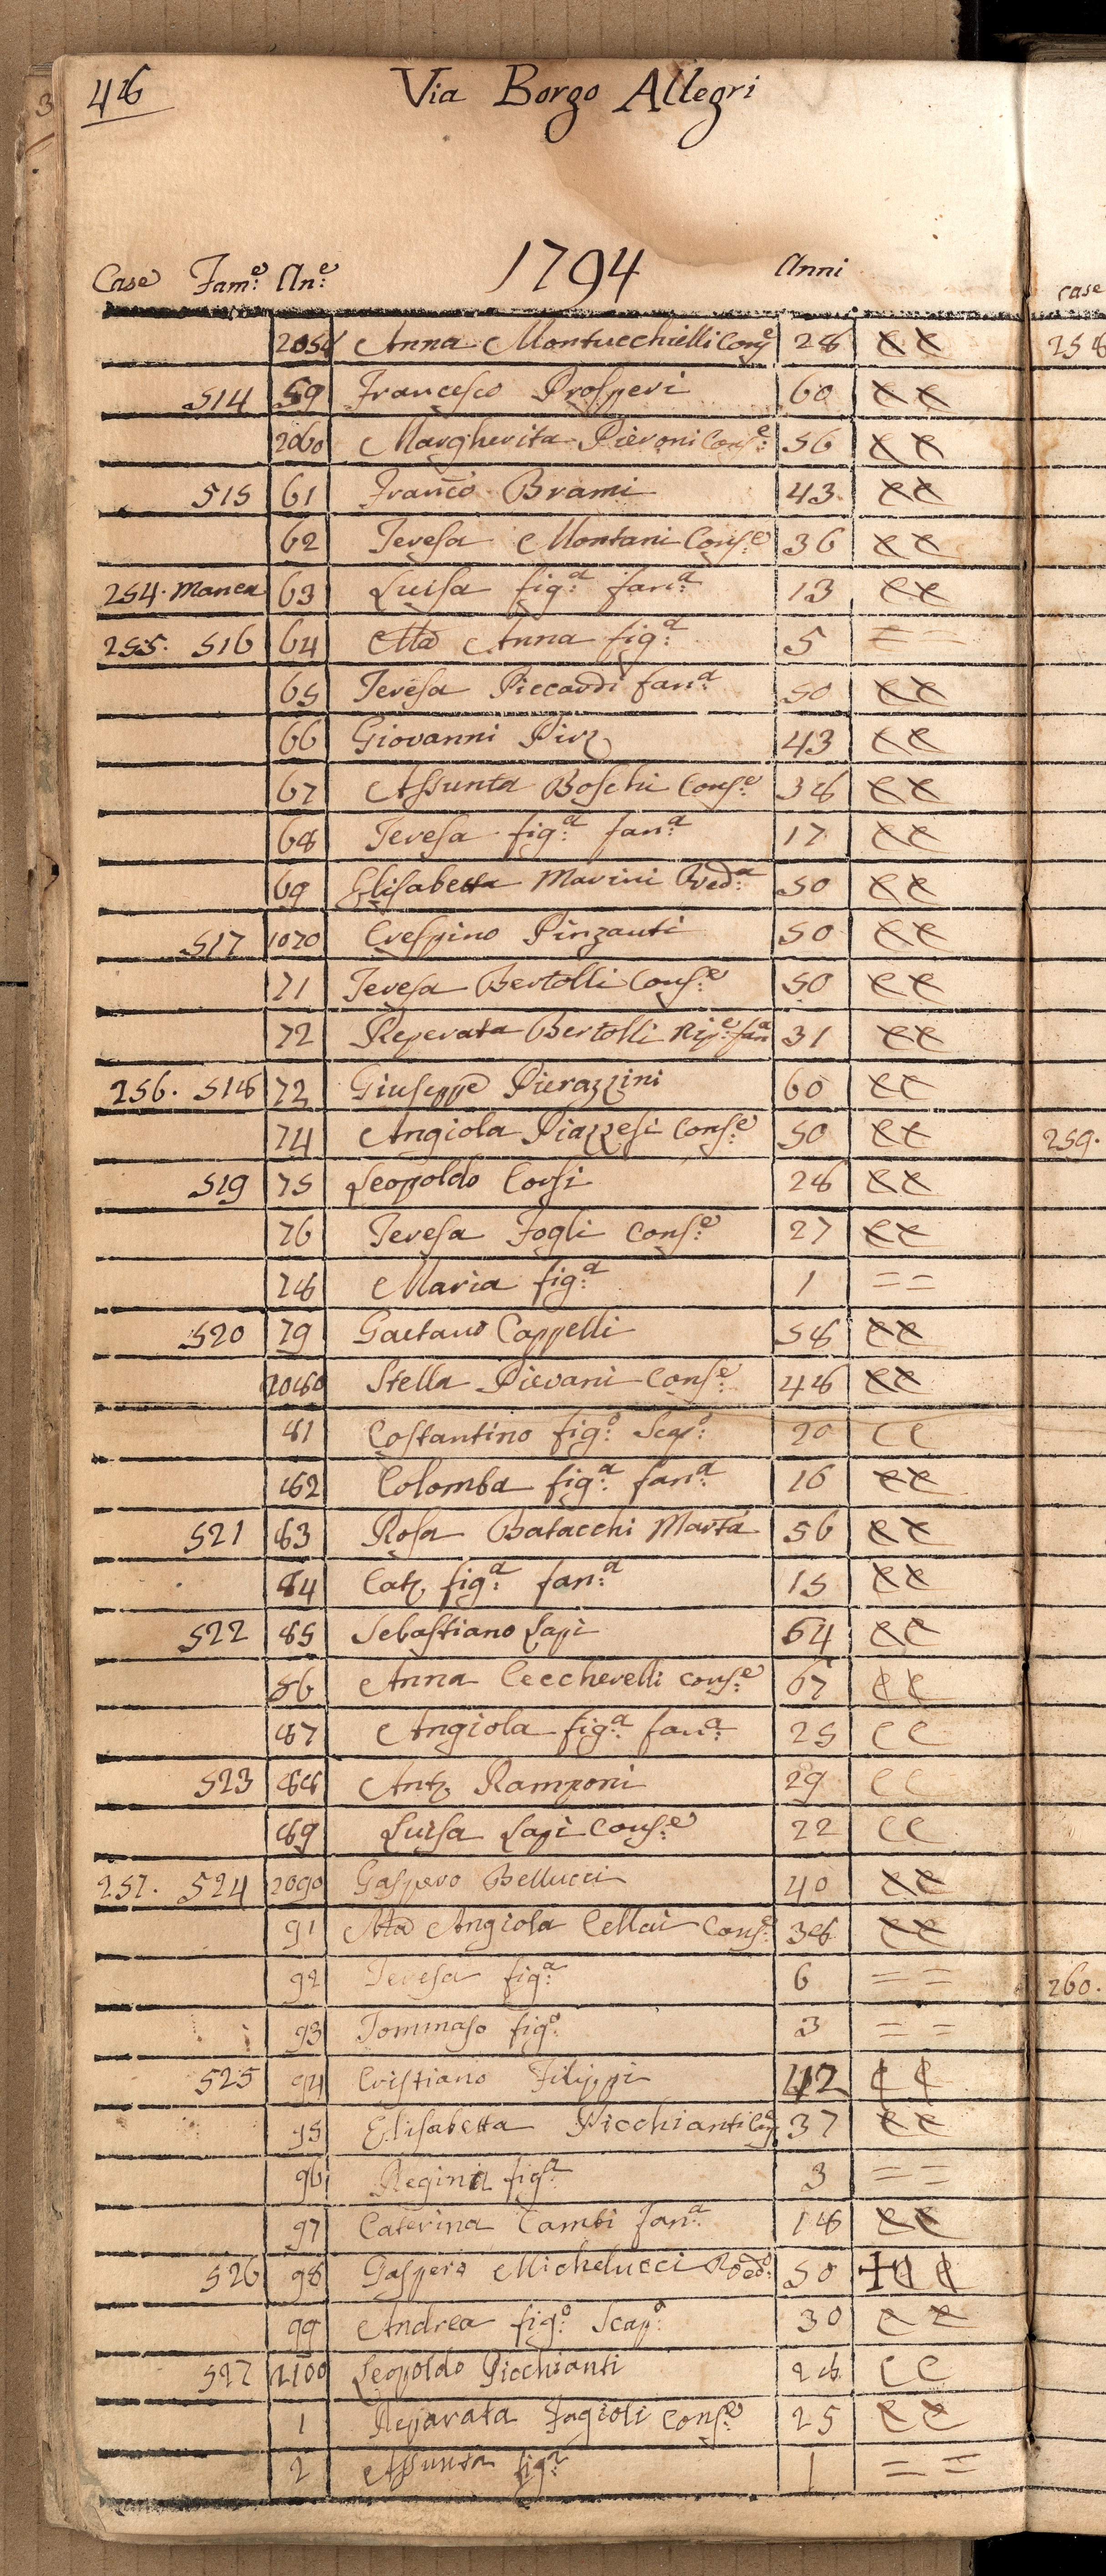 48
Via Borgo Allegri
1794
Case Fam.e An.e Anni
2058 Anna Montucchielli Cons.e 28
514 59 Francesco Prosperi 60
2060 Margherita Pieroni Cons.e 56
515 61 Franco Brami 43
62 Teresa Montani Cons.e 36
254. Manca 63 Luisa fig.a fan.a 13
255. 516 64 Ma Anna fig.a 5 = =
65 Teresa Piccardi fan.a 50
66 Giovanni Pirz 43
67 Assunta Boschi Cons.e 38
68 Teresa fig.a fan.a 17
69 Elisabetta Marini Ved.a 50
517 1070 Crespino Pinzauti 50
71 Teresa Bertolli Cons.e 50
72 Reperata Bertolli Nip.e fan.a 31
256. 518 72 Giuseppe Pierazzini 60
74 Angiola Piazzesi Cons.e 50
519 75 Leopoldo Corsi 28
76 Teresa Fogli Cons.e 27
78 Maria fig.a 1 = =
520 79 Gaetano Cappelli 58
2080 Stella Pievani Cons.e 48
81 Costantino fig.o Scap.o 20 C C
82 Colomba fig.a fan.a 16
521 83 Rosa Batacchi Marta 56
84 Cat. fig.a fan.a 15
522 85 Sebastiano Lapi 64
86 Anna Ceccherelli Cons.e 67
87 Angiola fig.a fan.a 25 C C
523 88 Ant. Ramponi 29 C C
89 Luisa Lapi Cons.e 22 C C
257. 524 2090 Gaspero Bellucci 40
91 Ma Angiola Cellai Cons.e 38
92 Teresa fig.a 6 = =
93 Tommaso fig.o 3 = =
525 94 Cristiano Filippi 42
95 Elisabetta Picchianti 37
96 Regina fig.a 3 = =
97 Caterina Cambi fan.a 18
526 98 Gaspero Michelucci Ved.o 50
99 Andrea fig.o Scap.o 30
527 2100 Leopoldo Picchianti 28 C C
1 Reparata Fagioli Cons.e 25
2 Assunta fig.a 1 = =
case
258
259.
260.